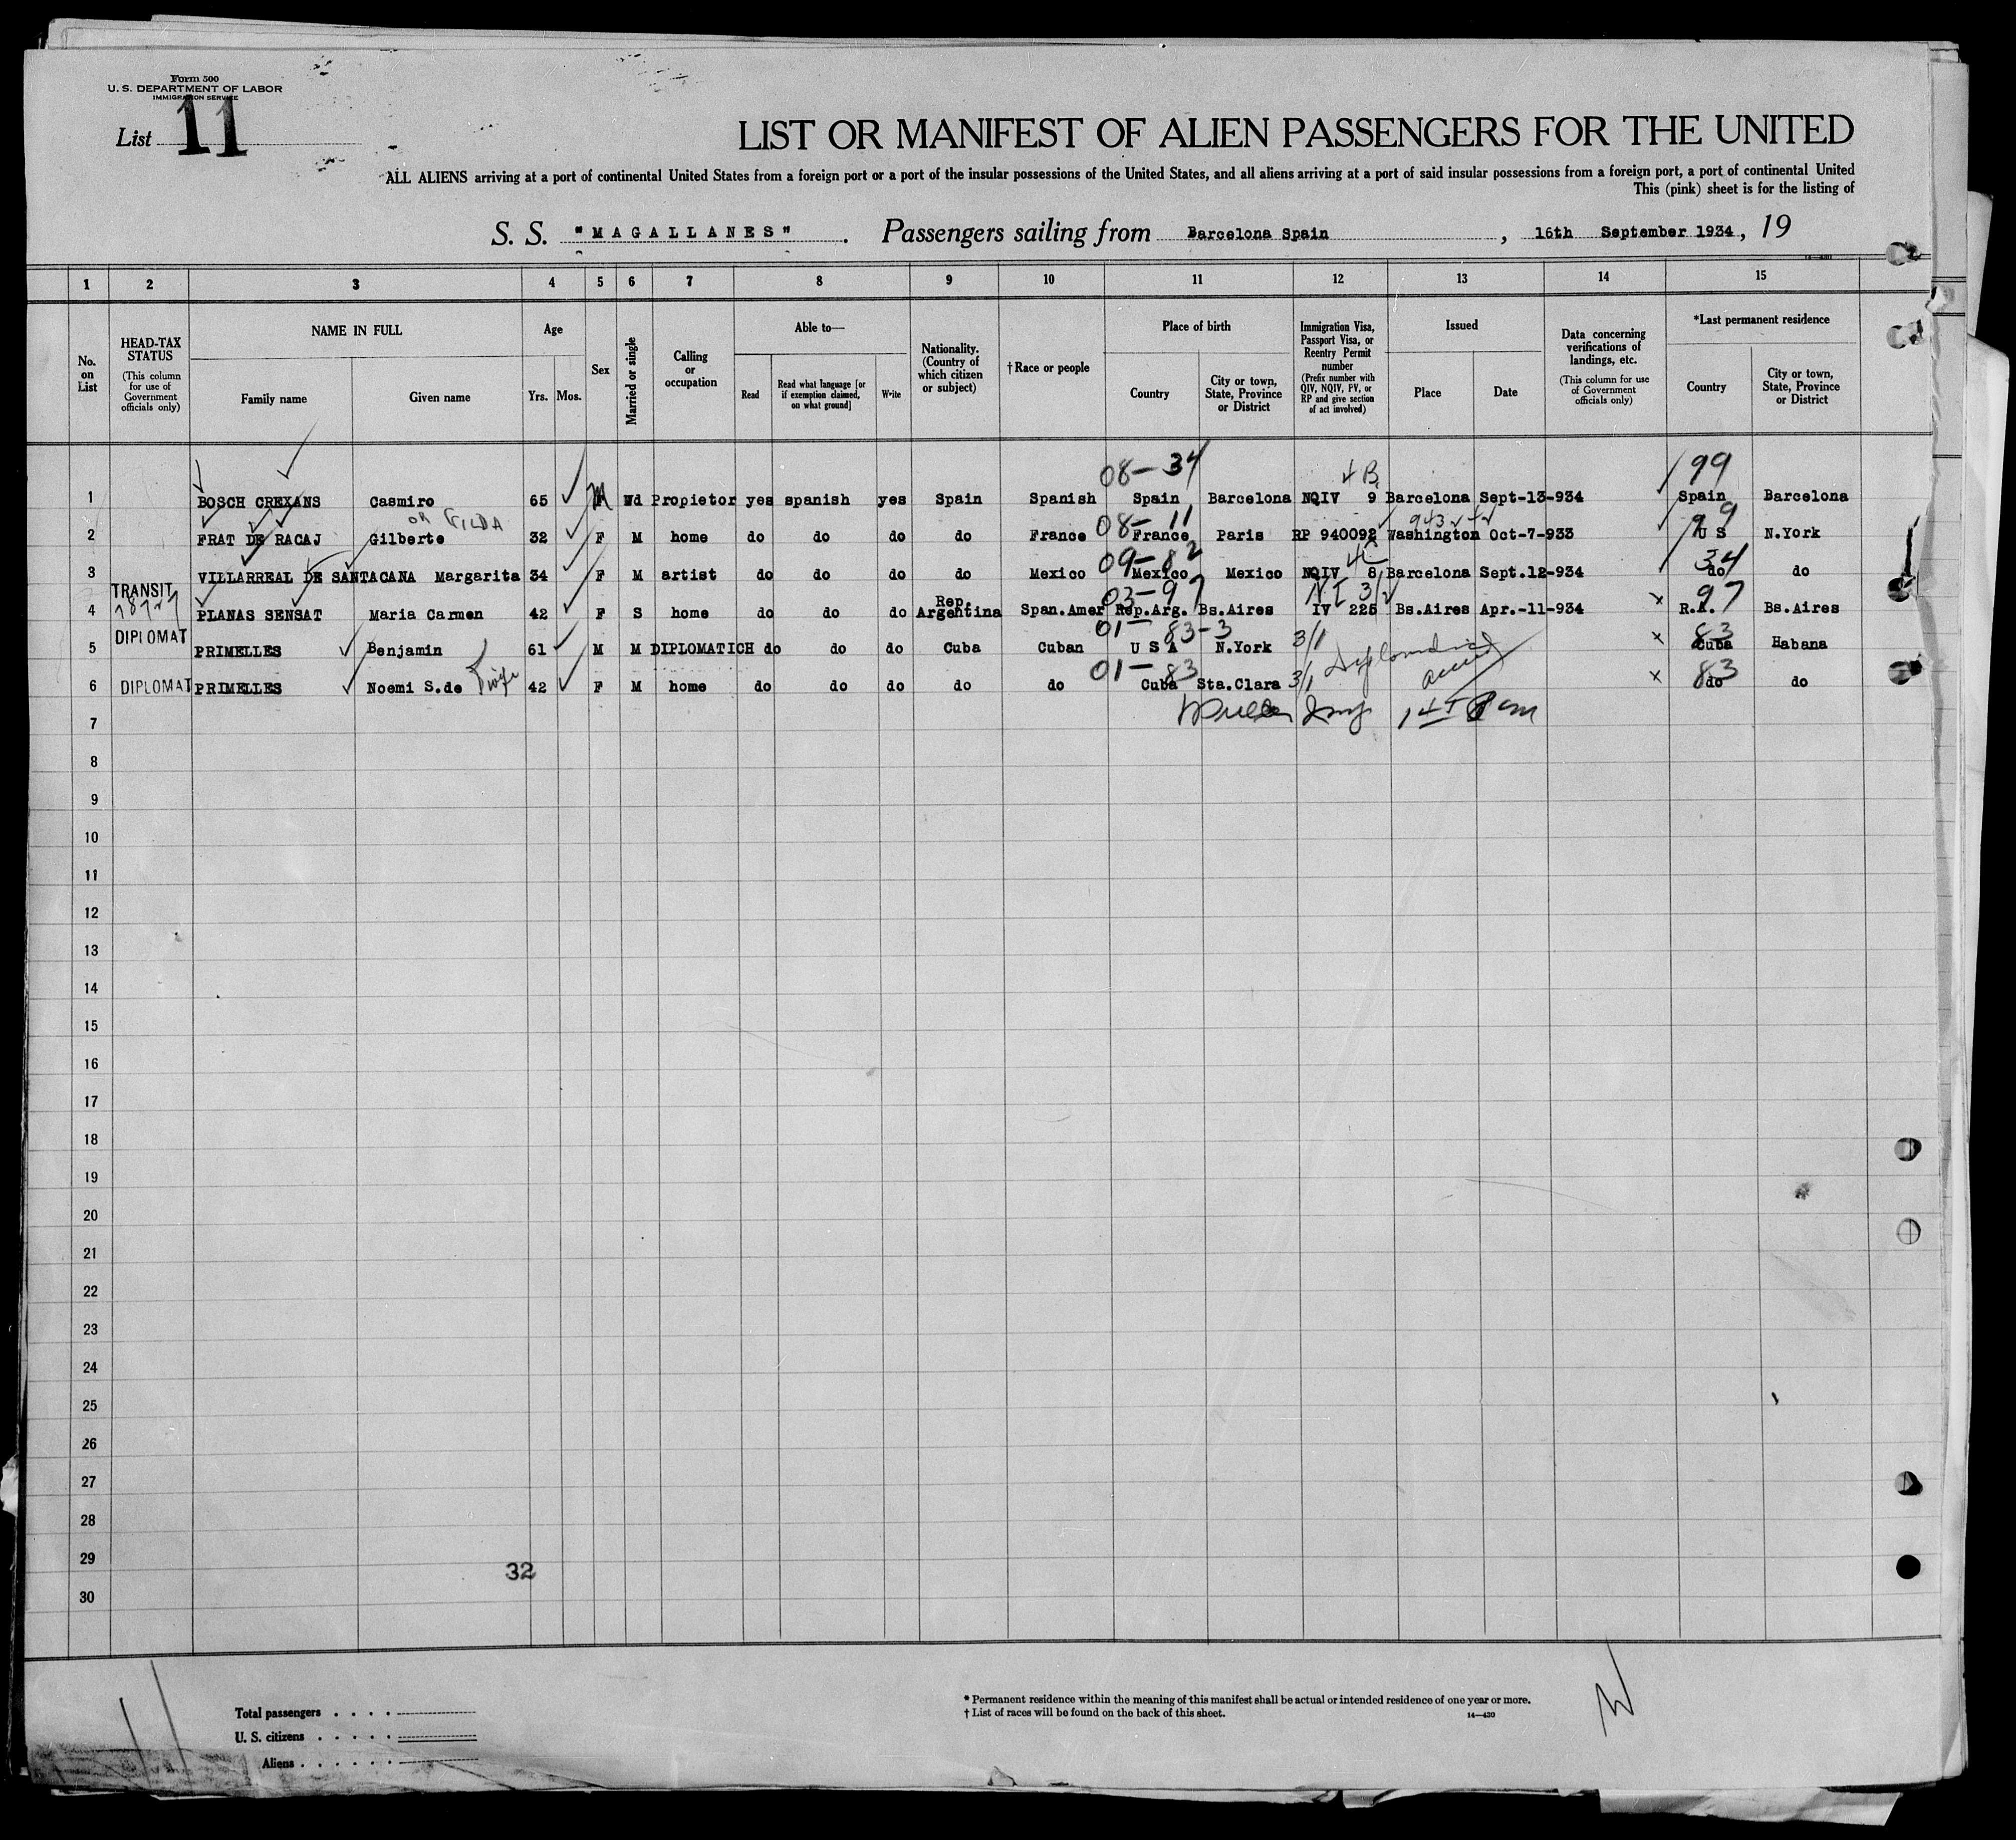 Form 500
U. S. DEPARTMENT OF LABOR
IMMIGRATION SERVICE
List 11
LIST OR MANIFEST OF ALIEN PASSENGERS FOR THE UNITED
ALL ALIENS arriving at a port of continental United States from a foreign port or a port of the insular possessions of the United States, and all aliens arriving at a port of said insular possessions from a foreign port, a port of continental United
This (pink) sheet is for the listing of
S. S. "MAGALLANES". Passengers sailing from Barcelona Spain, 16th September 1934, 19
1 2 3 4 5 6 7 8 9 10 11 12 13 14 15
No. on List
HEAD-TAX STATUS (This column for use of Government officials only)
NAME IN FULL Family name Given name
Age Yrs. Mos.
Sex
Married or single
Calling or occupation
Able to— Read Read what language [or if exemption claimed, on what ground] Write
Nationality. (Country of which citizen or subject)
† Race or people
Place of birth Country City or town, State, Province or District
Immigration Visa, Passport Visa, or Reentry Permit number (Prefix number with QIV, NQIV, PV, or RP and give section of act involved)
Issued Place Date
Data concerning verifications of landings, etc. (This column for use of Government officials only)
*Last permanent residence Country City or town, State, Province or District
08-34 4B 99
1 BOSCH CREXANS Casmiro 65 M Wd Propietor yes spanish yes Spain Spanish Spain Barcelona NQIV 9 Barcelona Sept-13-934 Spain Barcelona
OR GILDA 08-11 943 99
2 FRAT DE RACAJ Gilberte 32 F M home do do do do France France Paris RP 940092 Washington Oct-7-933 U S N.York
09-82 4C 34
3 VILLARREAL DE SANTACANA Margarita 34 F M artist do do do do Mexico Mexico Mexico NQIV 8 Barcelona Sept.12-934 do do
TRANSIT 03-97 97
4 PLANAS SENSAT Maria Carmen 42 F S home do do do Rep. Argentina Span.Amer Rep.Arg. Bs.Aires IV 225 Bs.Aires Apr.-11-934 R.A. Bs.Aires
DIPLOMAT 01- 83-3 83
5 PRIMELLES Benjamin 61 M M DIPLOMATICH do do do Cuba Cuban U S A N.York 3/1 Cuba Habana
01-83 83
6 DIPLOMAT PRIMELLES Noemi S.de wife 42 F M home do do do do do Cuba Sta.Clara 3/1 do do
7
8
9
10
11
12
13
14
15
16
17
18
19
20
21
22
23
24
25
26
27
28
29
32
30
Total passengers . . . .
U. S. citizens . . . . .
Aliens . . . . . .
* Permanent residence within the meaning of this manifest shall be actual or intended residence of one year or more.
† List of races will be found on the back of this sheet.
14—430